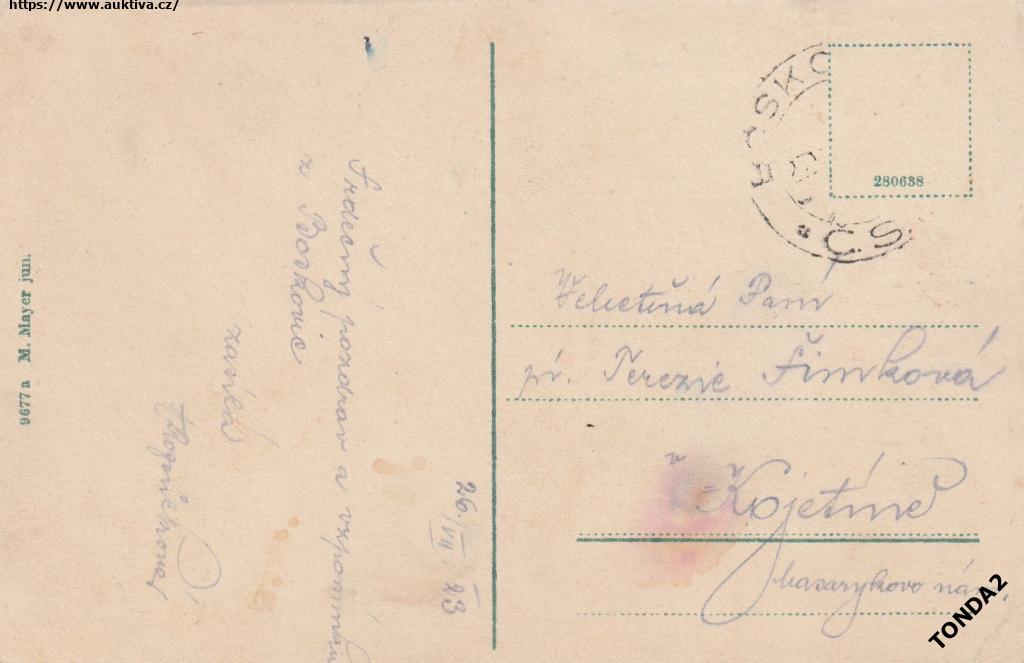 https://www.auktiva.cz/
26./VII. 23
Srdečný pozdrav a vzpomínku
z Boskovic
zasílá
9677a M. Mayer jun.
ESKO
ČS
280638
Velectěná Paní
pí. Terezie Šimková
v Kojetíně
Masarykovo nám.
TONDA2